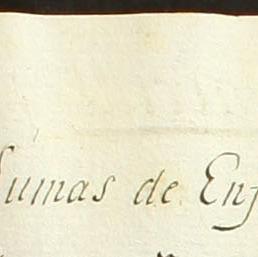 Sumas de Enf